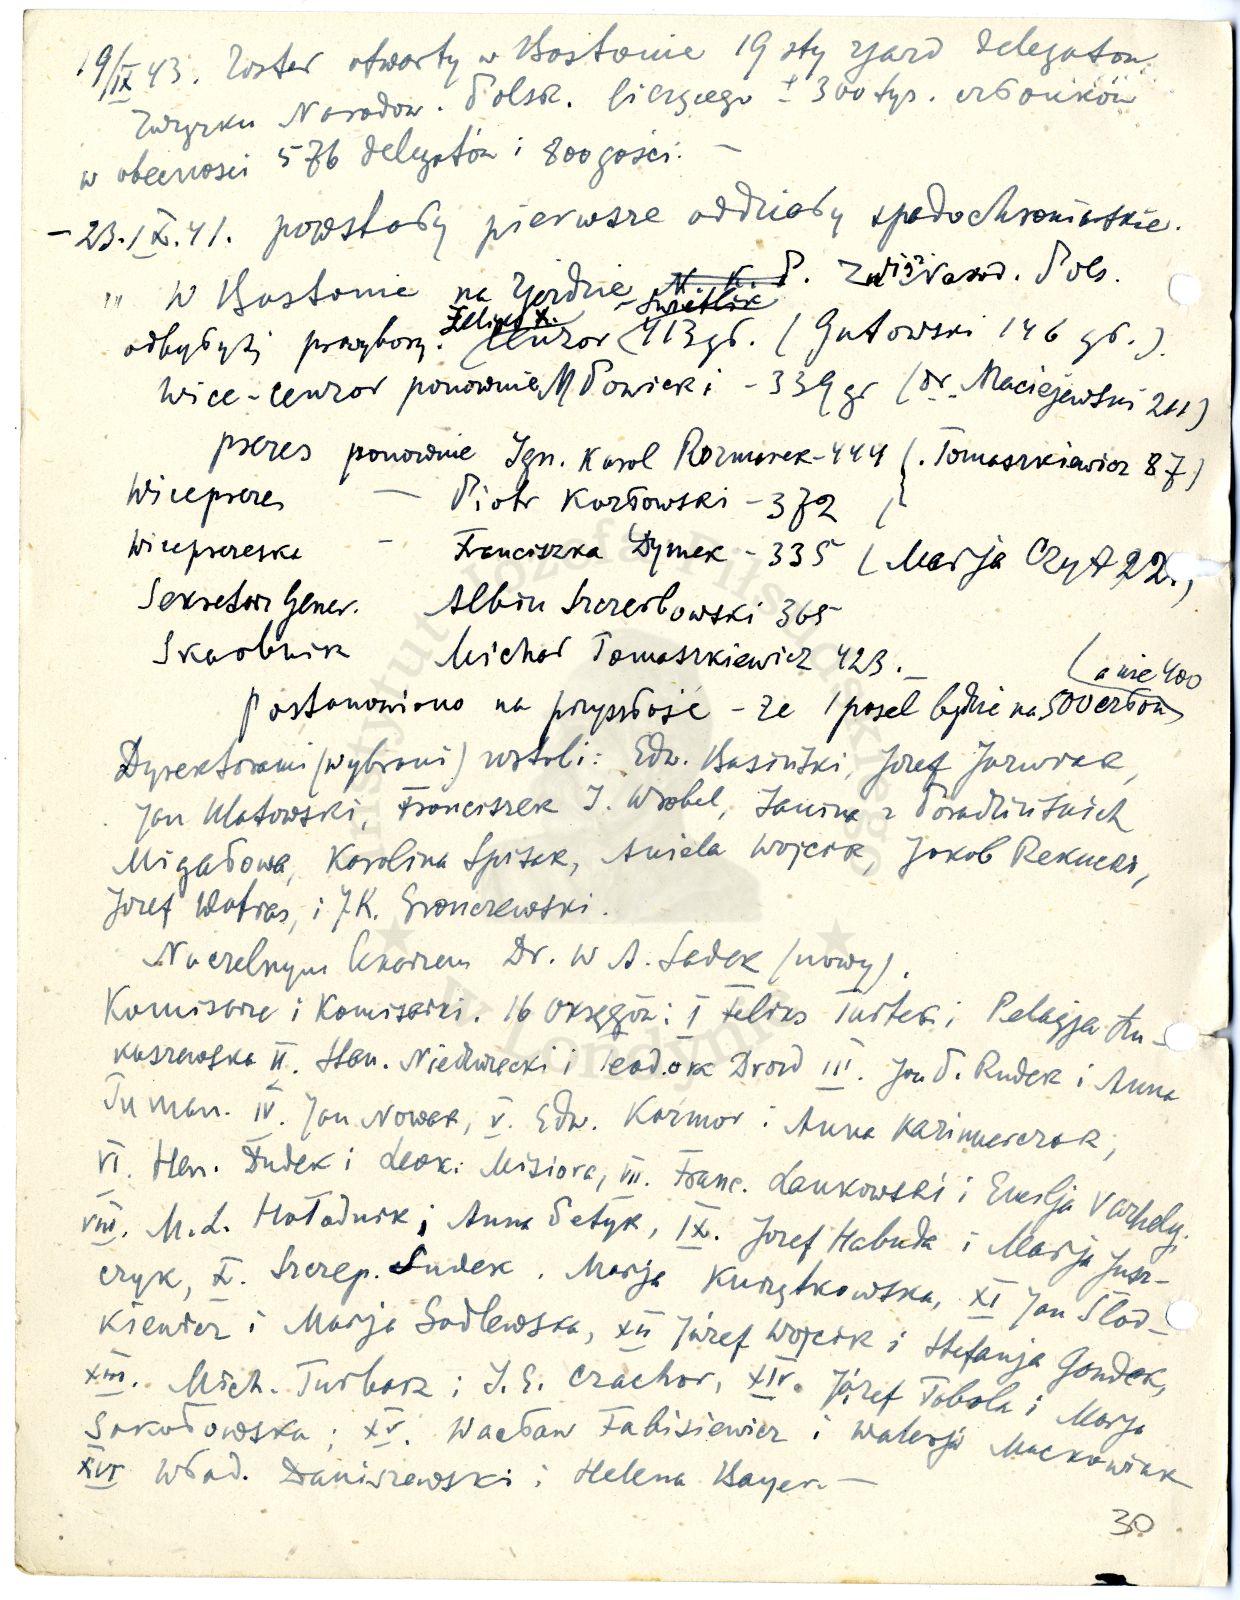 19/IX 43. Został otwarty w Bostonie 19 sty zjazd delegatów
Związku Narodow. Polsk. liczącego ± 300 tys. członków
w obecności 576 delegatów i 800 gości. —
- 23.IX.41. powstały pierwsze oddziały spadochroniarskie.
" W Bostonie na zjeździe N. K. P. Związ. Narod. Pols.
Feliks X. Świetlik
odbyły się prawybory. Cenzor (413 gł. (Gutowski 146 gł.).
Wice-cenzor ponownie Pawicki - 339 gł (Dr. Maciejewski 211)
prezes ponownie Ign. Karol Rozmarek - 444 (. Tomaszkiewicz 87)
Wiceprezes — Piotr Kozłowski - 372 (
Wiceprezeska - Franciszka Dymek - 335 (Marja Czyż 22.,
Sekretarz Gener. Albin Szczerbowski 365
Skarbnik Michał Tomaszkiewicz 423. _
(a nie 400
Postanowiono na przyszłość - że 1 poseł będzie na 500 członków
Dyrektorami (wybrani) zostali: Edw. Basiński, Józef Jaźwiak,
Jan Ulatowski, Franciszek J. Wróbel, Janina z Poradzińskich
Migałowa, Karolina Spisak, Aniela Wójcik, Jakob Rekucki,
Józef Watras, i J.K. Gronczewski.
Naczelnym lekarzem Dr. W A. Sadek (nowy).
Komisarze i Komisarki. 16 okręgów: I Feliks i Pelagja Łu-
kaszewska II. Stan. Niedźwiecki i Drozd III. Jan P. Rudek i Anna
Tuman. IV. Jan Nowak, V. Edw. Kaźmor i Anna Kazimierczak,
VI. Hen. Dudek i Leok. Misiora, VII. Franc. Lankowski i Emilja Varhely,
VIII. M.L. Hołodnik i Anna Petyk, IX. Józef Habuda i Marja Jusz-
czyk, X. Szczep. Sudek. Marja Kwiatkowska, XI Jan Stad-
kiewicz i Marja Sadlewska, XII Józef Wojcik i Stefanja Gondek,
XIII. Mich. Turbarz i J. E. Czachor, XIV. Józef Tobola i Marja
Sokołowska; XV. Wacław Fabisiewicz i Walerja Maćkowiak
XVI Wład. Daniszewski i Helena Bayer. —
30